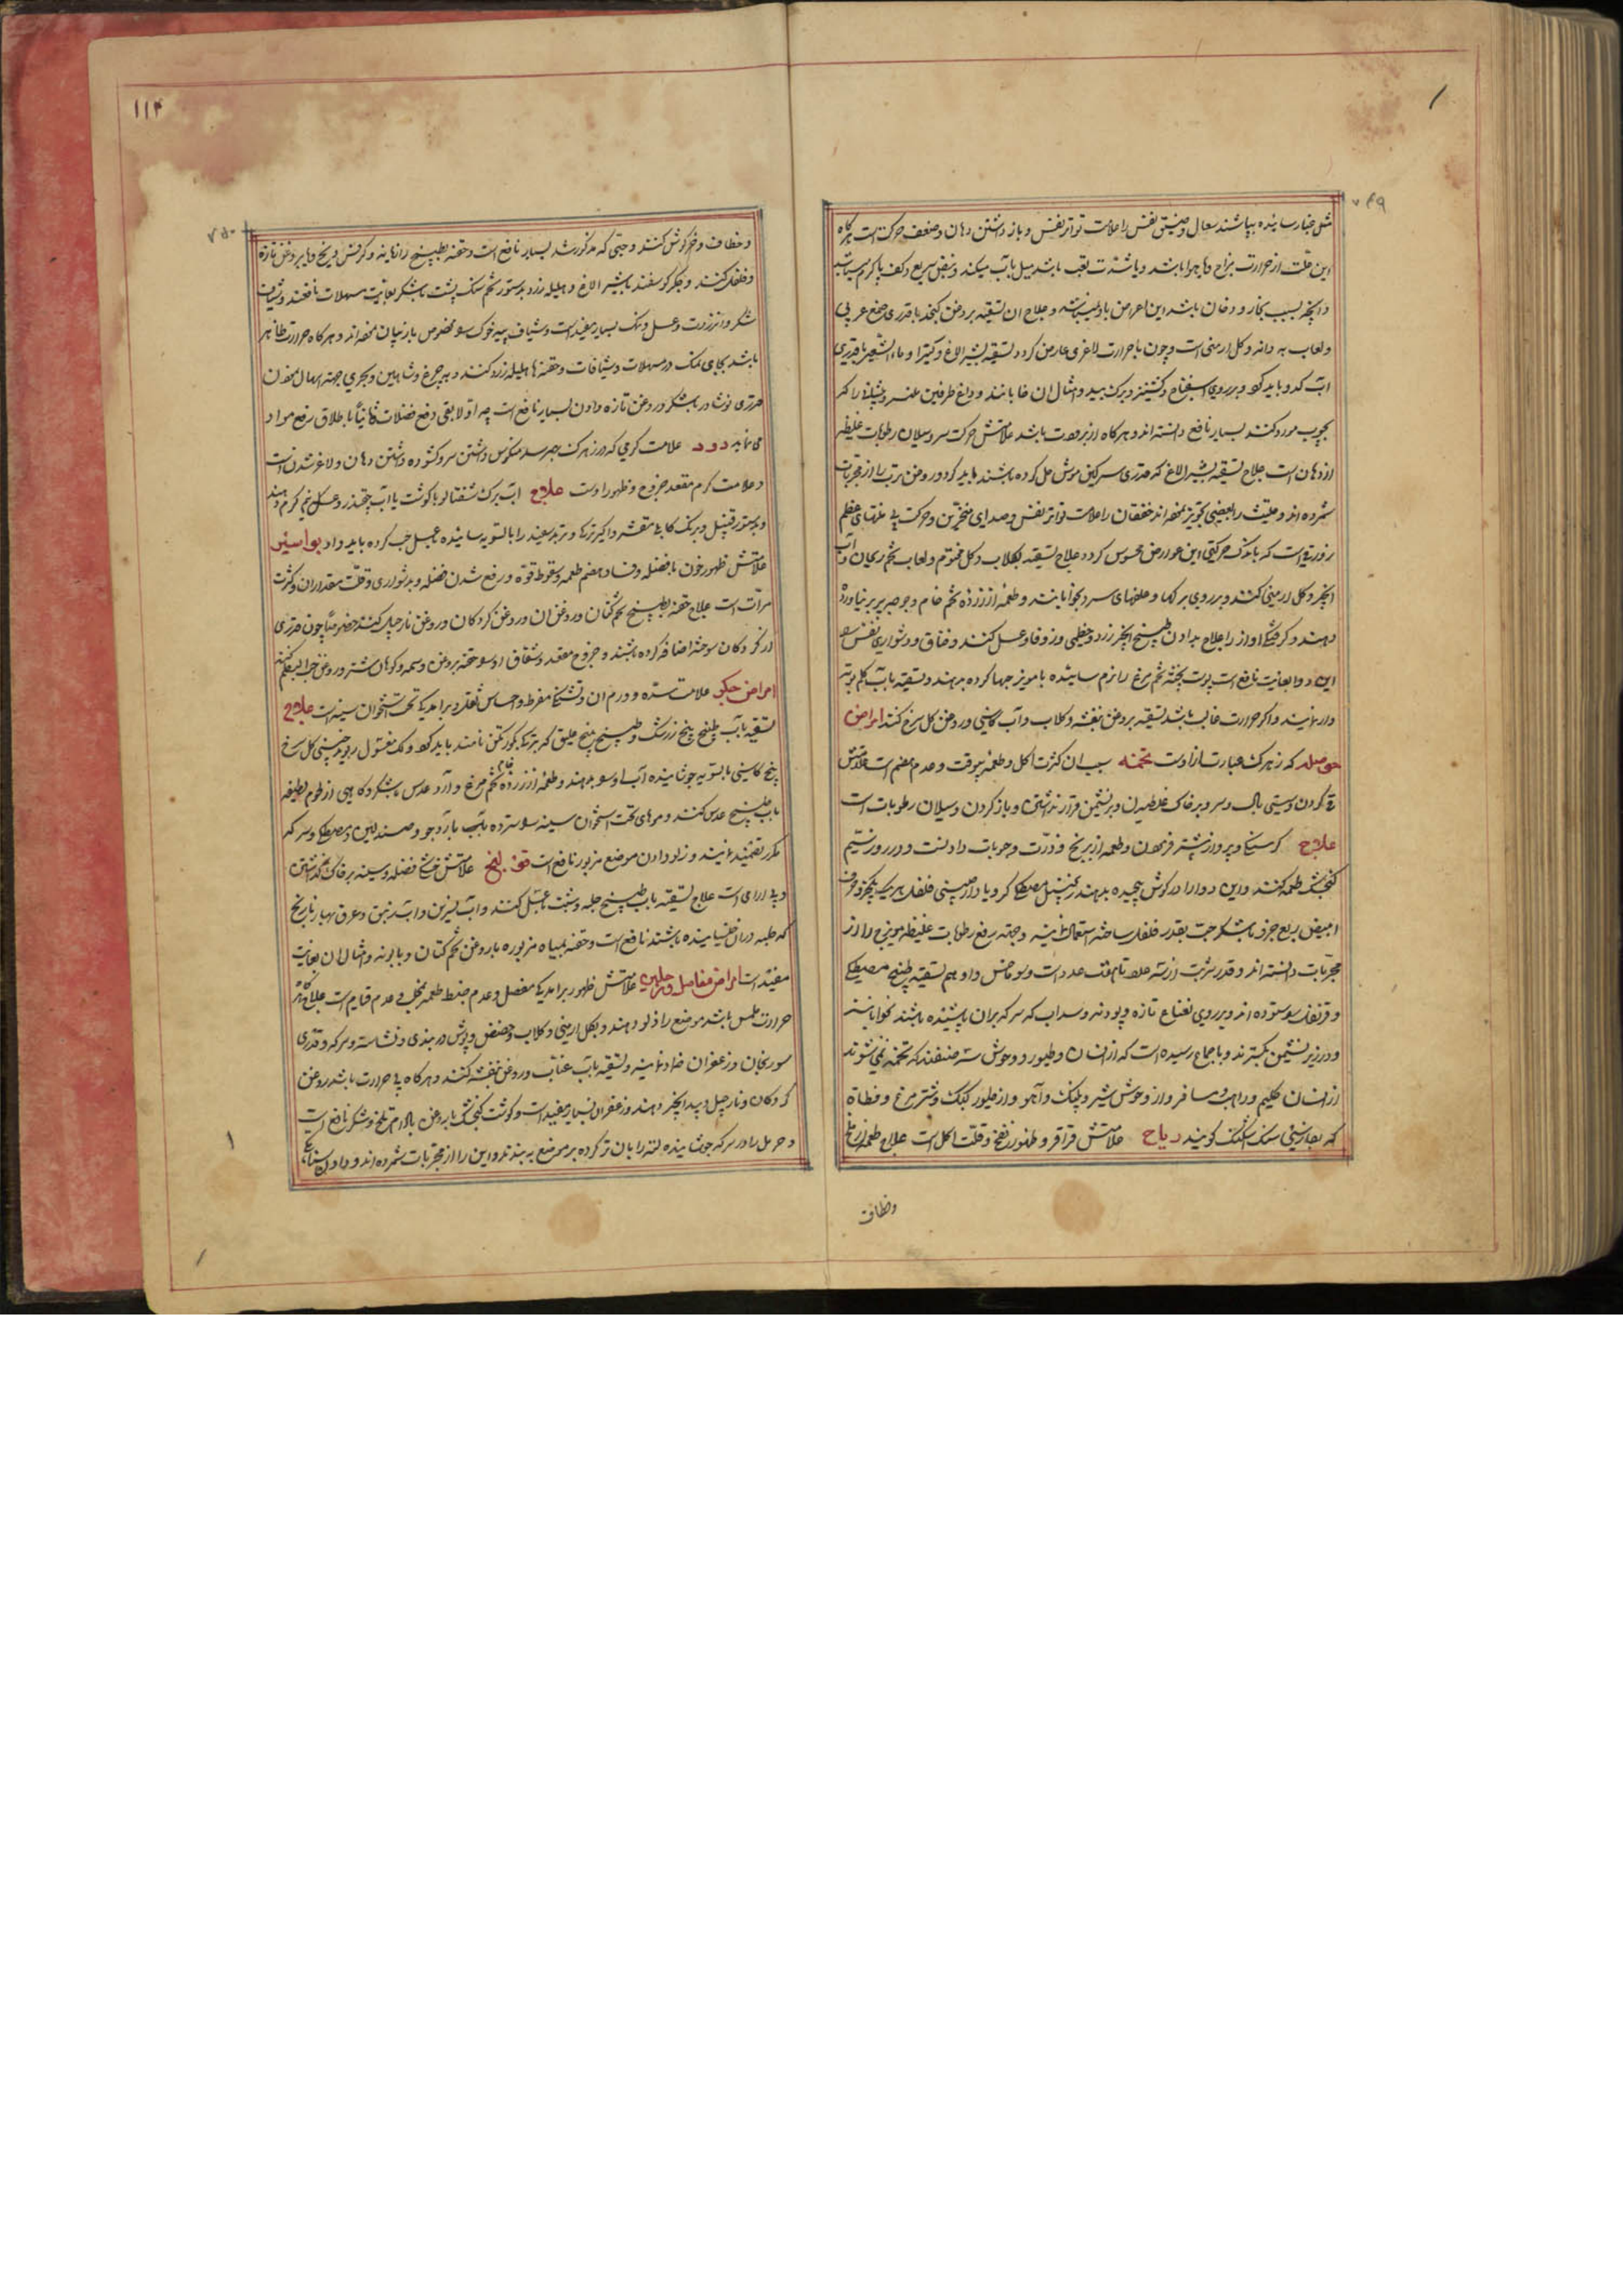 ۷۴۹
مثل غبار سائیده بپاشند سعال و ضیق نفس را علامت تواتر نفس و باز داشتن دهان و ضعف حرکت است هرکاه
این علت از حرارت مزاج یا هوا باشد و یا شدت تعب باشد میل بآب میکند و نبض سریع و کف پا کرم میباشد
و انچه بسبب بخار و دخان باشد این اعراض با او نیست و علاج ان تسقیه بروغن کنجد با قدری صمغ عربی
و لعاب به دانه و کل ارمنی است و چون با حرارت لاغری عارض کردد تسقیه بشیر الاغ و کتیرا و ماء الشعیر با قدری
آب کدو باید کرد و بر روی اسفناج و کشنیز و برک بید و امثال ان خوابانند و
نجوب مرور کنند بسیار نافع دانسته اند و هرکاه از برودت باشد علامتش حرکت سر و سیلان رطوبات غلیظه
از دهان است علاج تسقیه بشیر الاغ که قدری سرکین موش حل کرده باشند باید کرد و روغن ترب را از مجربات
شمرده اند و حلتیت را بعضی تجویز نموده اند خفقان را علامت تواتر نفس و صدای منخرین و حرکت
که باندک حرکتی این عوارض محسوس کردد علاج تسقیه بکلاب و کل مختوم و لعاب تخم ریحان و آب
انجیر و کل ارمنی کنند و بر روی برکها و علفهای سرد بخوابانند و طعمه از زرده تخم خام و جوجه پر بر نیاورده
دهند و کرفتکی اواز را علاج بدادن طبیخ انجیر زرد و خطمی و زوفا و عسل کنند و خناق و دشواری نفس را
این دوا بغایت نافع است پوست پخته تخم مرغ را نرم سائیده با مویز حبها کرده بدهند و تسقیه بآب کلم
دارنمایند و اکر حرارت غالب باشد تسقیه بروغن بنفشه و کلاب و آب کاسنی و روغن کل سرخ کنند امراض
حوصله که زهرک عبارت از اوست تخمه سبب ان کثرت اکل و طعمه بیوقت و عدم هضم است علامتش
قی کردن و سستی بال و سر و بر خاک غلطیدن و بر نشیمن قرار نداشتن و باز کردن و سیلان رطوبات است
علاج کرسنکی و پرواز پیشتر فرمودن و طعمه از برنج و ذرت و حبوبات دادنست و در روز سیم
کنجشک طعمه کنند و این دوا را در کوشت پیچیده بدهند زنجبیل مصطکی کرویا دارچینی فلفل هر یک یکجزو
ابیض ربع جزو با شکر حب بقدر فلفل ساخته استعمال نمایند و جهة رفع رطوبات غلیظه مویزج را از
مجربات دانسته اند و قدر شربت از سه عدد تا هفت عدد است و داوهم تسقیه بطبیخ مصطکی
و قرنفل ستوده اند و بر روی نعناع تازه و پودنه و سداب که سرکه بران پاشیده باشند خوابانند
و در زیر نشیمن بکسترند و باجماع رسیده است که از انسان و طیور و وحوش سه صنفند که تخمه نمیشوند
از انسان حکیم و راهب و مسافر و از وحوش شیر و پلنک و آهو و از طیور کبک و شتر مرغ و قطاة
که بفارسی سنک کویند ریاح علامتش قراقر و ظهور نفخ و قلت اکل است علاج طعمه از
وخطاف
۱۱۴
۷۵۰
وخطاف و خرکوش کنند و حبی که مذکور شد بسیار نافع است و حقنه بطبیخ رازیانه و کرفس و برنج و با بروغن تازه
و فلفل کنند و جکر کوسفند با شیر الاغ و هلیله زرد بدستور تخم با شکر بغایت مسهلات نافعند و شیاف
شکر و انزروت و عسل و نمک بسیار مفید است و شیاف پیه خوک مخصوص بازیان نموده اند و هرکاه حرارت ظاهر
باشد بجای نمک در مسهلات و شیافات و حقنه ها هلیله زرد کنند و به چرغ و شاهین و بحری جهة اسهال نمودن
قدری نوشادر با شکر و روغن تازه دادن بسیار نافع است چه اولا بقی دفع فضلات ثانیا باطلاق رفع مواد
می نماید دود علامت کرمی که در زهرک بهم رسد منکوس داشتن سر و کشوده داشتن دهان و لاغر شدن است
و علامت کرم مقعد خروج و ظهور اوست علاج آب برک شفتالو با کوشت یا آب چغندر و عسل نیم کرم دهند
و بدستور قنبیل و برنک کابلی مقشر و تربد سفید را بالسویه سائیده بعسل حب کرده باید داد بواسیر
علامتش ظهور خون با فضله و فساد هضم طعمه و سقوط قوة و رفع شدن فضله بدشواری و قلت مقدار ان و کثرت
مرآت است علاج حقنه بطبیخ تخم کتان و روغن ان و روغن کردکان و روغن نارجیل کنند خصوصا چون قدری
از کردکان سوخته اضافه کرده باشند و خروج مقعد و شقاق او سو حقنه بروغن وسمه و کوهان شتر و روغن
امراض جکر علامت سده و ورم ان و تشنج مفرط و احساس ثقل و برامدکی تحت استخوان سینه است علاج
تسقیه بآب طبیخ بیخ زرشک و طبیخ بیخ علیق که بترکی بکورتکن نامند باید کرد و لک مغسول ریوند چینی کل سرخ
بیخ کاسنی بالسویه جوشانیده آب او بدهند و طعمه از زرده تخم مرغ خام و آرد عدس با شکر و کاهی از لحوم لطیفه
با طبیخ عدس کنند و موهای تحت استخوان سینه سترده بآب بارد جو و صندلین و مصطکی و سرکه
مکرر تضمید نمایند و زلو دادن موضع مزبور نافع است قولنج علامتش خشکی فضله و سینه بر خاک کذاشتن
و است علاج تسقیه باب طبیخ حلبه و شبت بعسل کنند و آب لیزن و آب زنبق و عرق بهار نارنج
که حلبه دران خیسانیده باشند نافع است و حقنه بمیاه مزبوره با روغن تخم کتان و بابونه و امثال ان بغایت
مفید است امراض مفاصل و رجلین علامتش ظهور برامدکی مفصل و عدم ضبط طعمه بچنکل و عدم قیام است علاج اکر
حرارت ملمس باشد موضع را زلو دهند و بکل ارمنی و کلاب و حضض و پوش دربندی و نشاسته و سرکه و قدری
سورنجان و زعفران ضماد نمایند و تسقیه بآب عناب و روغن بنفشه کنند و هرکاه بی حرارت باشد روغن
کردکان و نارجیل و بید انجیر دهند و زعفران بسیار مفید است و کوشت کنجشک با روغن بادام تلخ و شکر نافع است
و حرمل را در سرکه جوشانیده لته را بان تر کرده بر موضع به بندند و این را از مجربات شمرده اند و دادن
۱